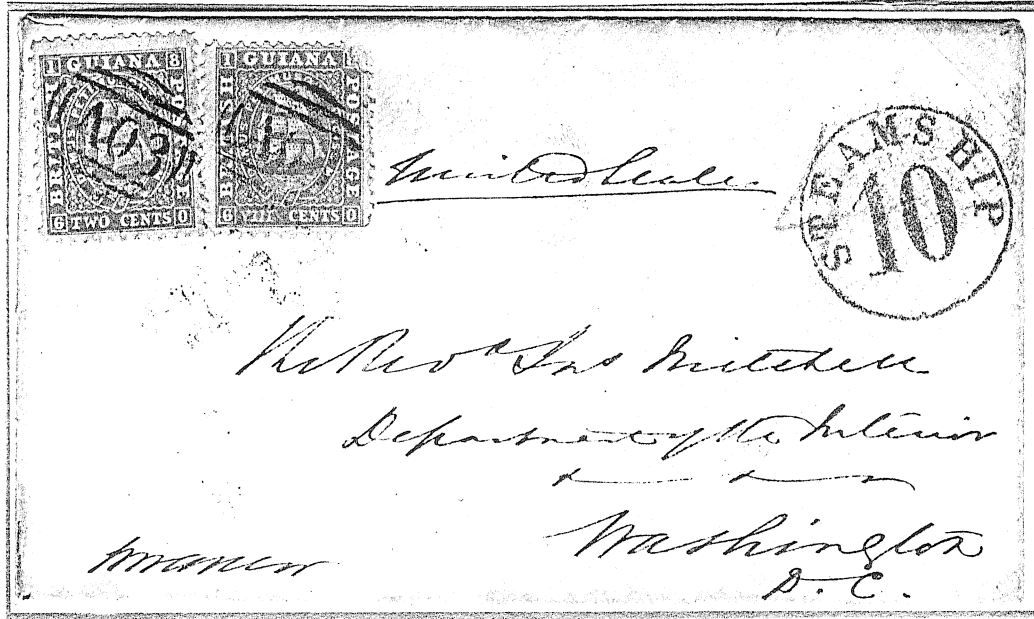 1 GUIANA 8
BRITISH
POSTAGE
6 TWO CENTS 0
A03
1 GUIANA
BRITISH
POSTAGE
6 VIII CENTS 0
STEAMSHIP
10
United
The Revd Jno Mitchell
Department of the Interior
Washington
D. C.